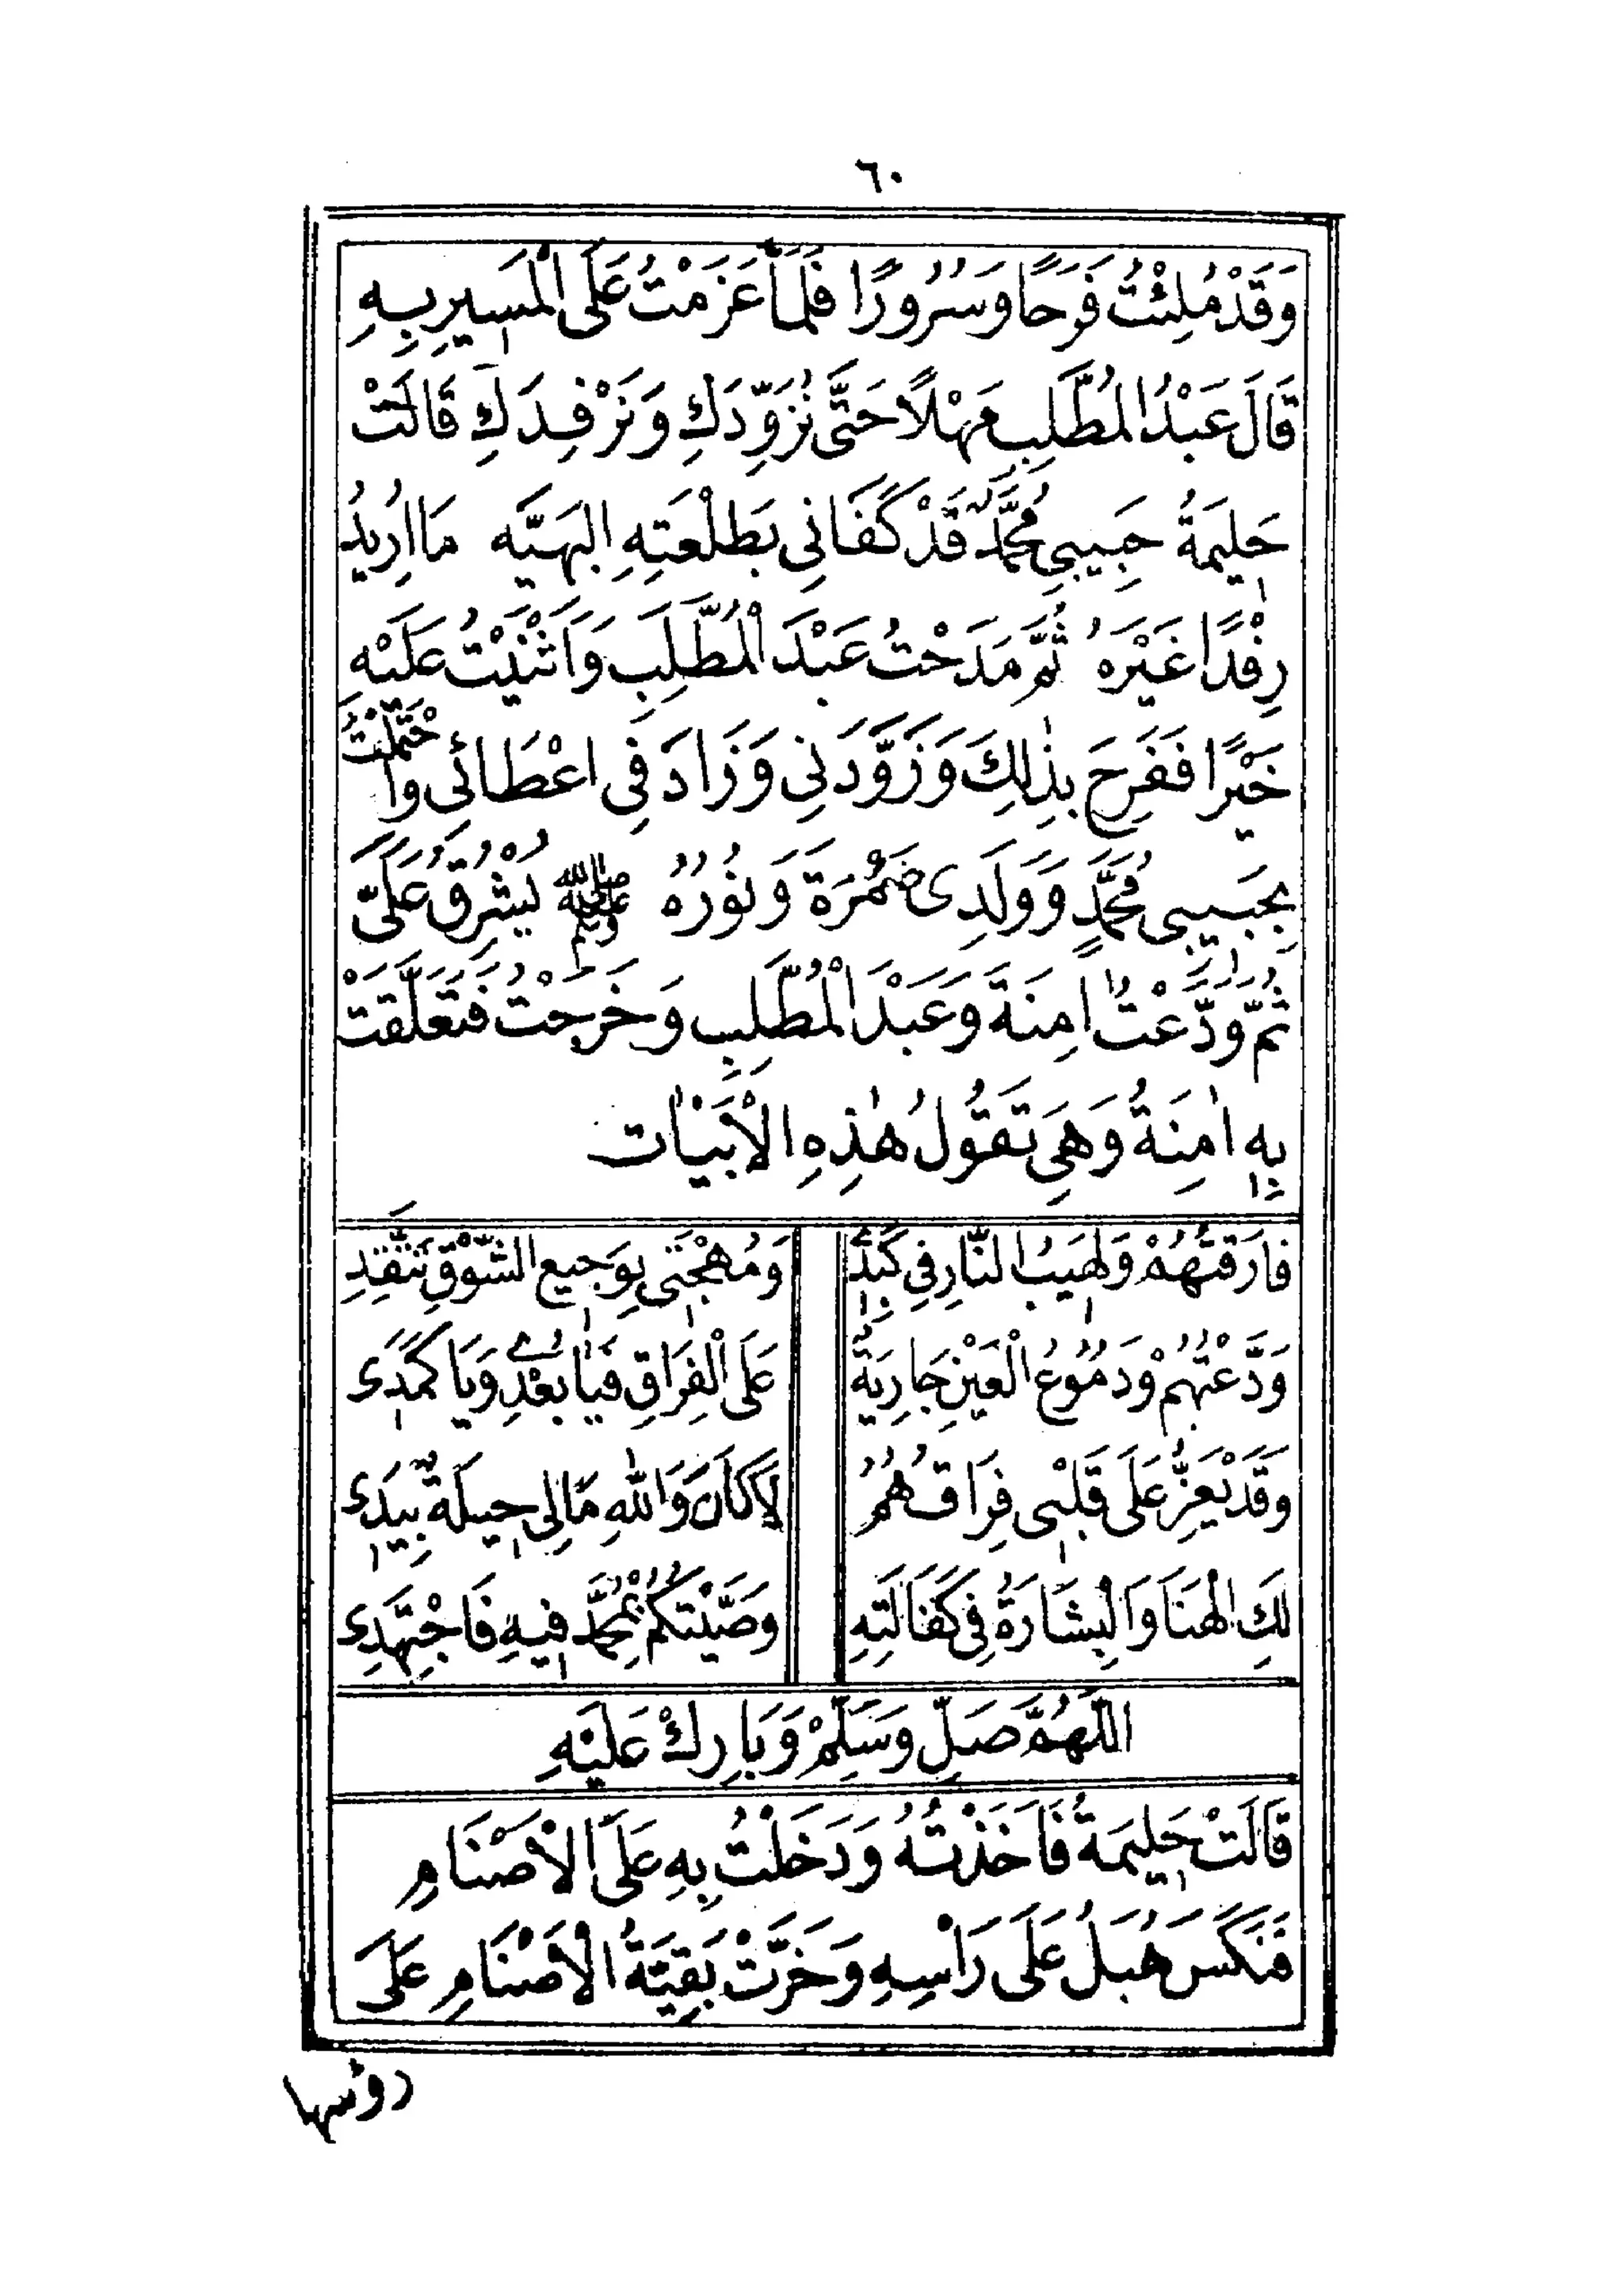 ٦٠
وَقَدْ مُلِئْتُ فَرَحًا وَسُرُورًا فَلَمَّا عَزَمْتُ عَلَى الْمَسِيرِ بِهِ
قَالَ عَبْدُ الْمُطَّلِبِ مَهْلًا حَتَّى نُزَوِّدَكِ وَنَرْفِدَكِ قَالَتْ
حَلِيمَةُ حَبِيبِي مُحَمَّدٌ قَدْ كَفَانِي بَطَلْعَتِهِ الْبَهِيَّه مَا اُرِيدُ
رِفْدًا غَيْرَهُ ثُمَّ مَدَحْتُ عَبْدَ الْمُطَّلِبِ وَاَثْنَيْتُ عَلَيْهِ
خَيْرًا فَفَرِحَ بِذٰلِكَ وَزَوَّدَنِي وَزَادَ فِي اعْطَائِي وَاحْتَمَلْتُ
بِحَبِيبِي مُحَمَّدٍ وَوَلَدِي ضَمُرَةَ وَنُورُهُ ﷺ يُشْرِقُ عَلَيَّ
ثُمَّ وَدَّعْتُ اٰمِنَةَ وَعَبْدَ الْمُطَّلِبِ وَخَرَجْتُ فَتَعَلَّقَتْ
بِهِ اٰمِنَةُ وَهِيَ تَقُولُ هٰذِهِ الْاَبْيَات
فَارَقْتُهُمْ وَلَهِيبُ النَّارِ فِي كَبِدِي وَمُهْجَتِي بِوَجِيعِ الشَّوْقِ تَتَّقِدِ
وَدَّعْتُهُمْ وَدَمُوعُ الْعَيْنِ جَارِيَةٌ عَلَى الْفِرَاقِ فَيَا بُعْدِي وَيَا كَمَدِي
وَقَدْ يَعِزُّ عَلَى قَلْبِي فِرَاقُهُمُ لَا كَانَ وَاللّٰهِ مَالِي حِيلَةٌ بِيَدِي
لَكِ الْهَنَا وَالْبِشَارَةُ فِي كَفَالَتِهِ وَصَّيْتُكُمْ بِمُحَمَّدْ فِيهِ فَاجْتَهِدِي
اللّٰهُمَّ صَلِّ وَسَلِّمْ وَبَارِكْ عَلَيْهِ
قَالَتْ حَلِيمَةُ فَاَخَذْتُهُ وَدَخَلْتُ بِهِ عَلَى الْاَصْنَامِ
فَنَكَسَ هُبَلُ عَلَى رَاْسِهِ وَخَرَّتْ بَقِيَّةُ الْاَصْنَامِ عَلَى
رؤسها